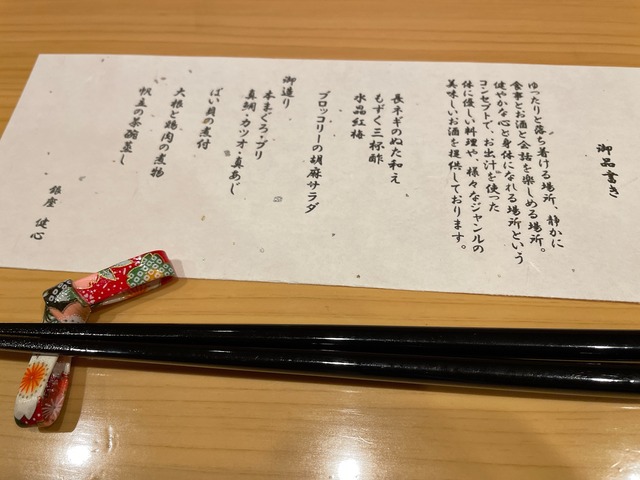 御品書き
ゆったりと落ち着ける場所、静かに
食事とお酒と会話を楽しめる場所。
健やかな心と身体になれる場所という
コンセプトで、お出汁を使った
体に優しい料理や、様々なジャンルの
美味しいお酒を提供しております。
長ネギのぬた和え
もずく三杯酢
水晶紅梅
ブロッコリーの胡麻サラダ
御造り
本まぐろ・ブリ
真鯛・カツオ・真あじ
ばい貝の煮付
大根と鶏肉の煮物
帆立の茶碗蒸し
銀座 健心